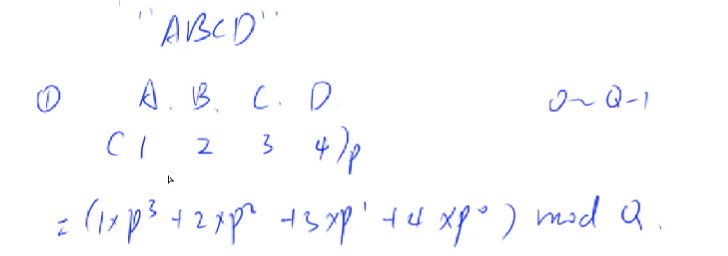 "ABCD"
① A. B. C. D 0~Q-1
(1 2 3 4)p
= (1×p³+2×p²+3×p¹+4×p⁰) mod Q.